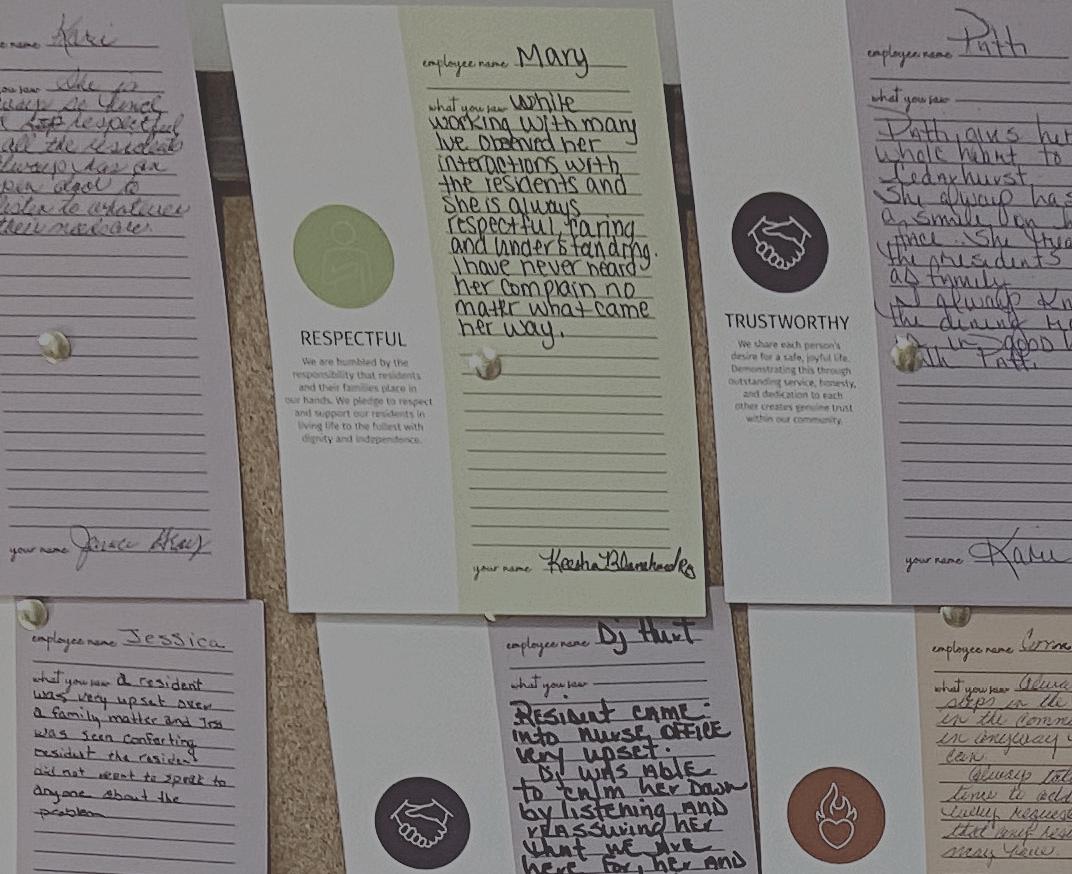 employee name Kari
She is
so kind
respectful
all the residents
always has an
open door to
listen to whatever
their needs are.
your name
employee name Mary
what you saw while
working with mary
Ive observed her
interactions with
the residents and
she is always
respectful, caring
and understanding.
I have never heard
her complain no
matter what came
her way.
RESPECTFUL
We are humbled by the
responsibility that residents
and their families place in
our hands. We pledge to respect
and support our residents in
living life to the fullest with
dignity and independence.
your name Keesha
employee name Patti
what you saw
Patti gives her
whole heart to
Cedarhurst.
She always has
a smile on
face. She treats
the residents
as family.
I always
the dining
is in good
with Patti.
TRUSTWORTHY
We share each person's
desire for a safe, joyful life.
Demonstrating this through
outstanding service, honesty,
and dedication to each
other creates genuine trust
within our community.
your name
employee name Jessica
what you saw a resident
was very upset over
a family matter and Jess
was seen comforting
resident the resident
did not want to speak to
anyone about the
problem
employee name Dj Hurt
what you saw
RESIDENT CAME
into NURSE OFFICE
very upset.
Dj WAS ABLE
to CALM her Down
by listening AND
REASSURING HER
that we are
here for, her AND
employee name
what you saw always
steps in the
in the
in anyway
can.
Always
time to
every request
that any
may have.